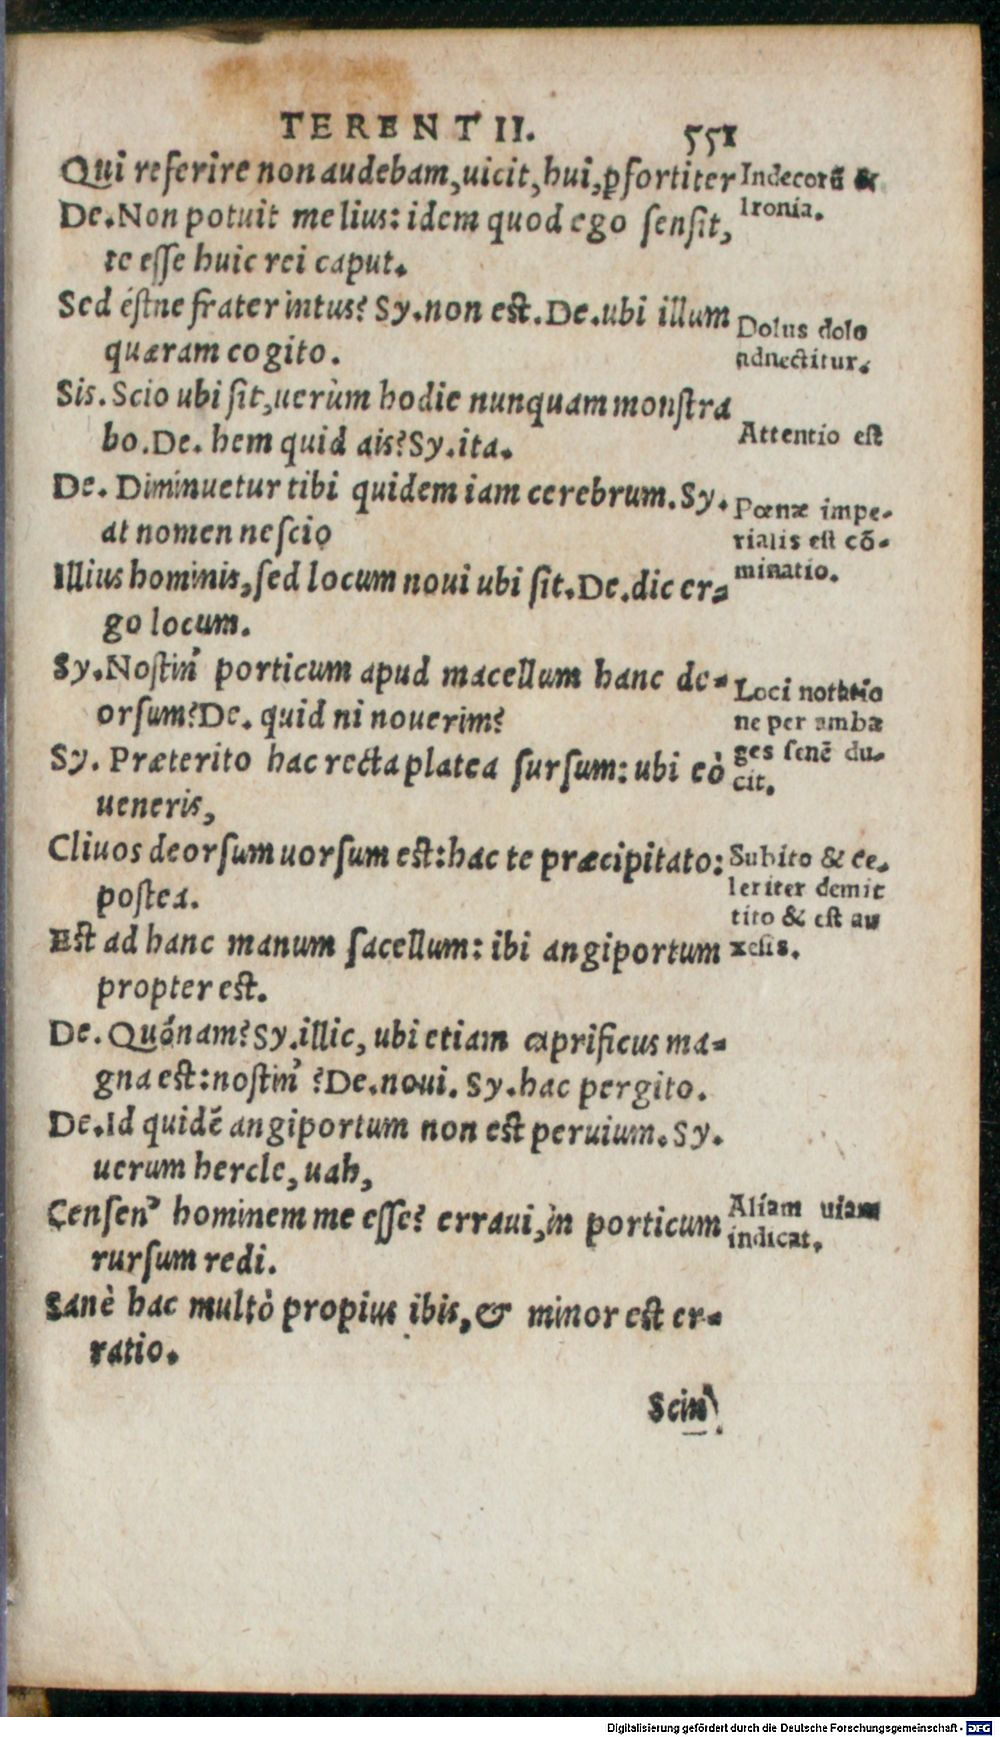 TERENTII. 551
Qui referire non audebam, uicit, hui, ꝑfortiter
De. Non potuit melius: idem quod ego sensit,
te esse huic rei caput.
Sed éstne frater intus? Sy. non est. De. ubi illum
quæram cogito.
Sis. Scio ubi sit, uerùm hodie nunquam monstra
bo. De. hem quid ais? Sy. ita.
De. Diminuetur tibi quidem iam cerebrum. Sy.
at nomen nescio
Illius hominis, sed locum noui ubi sit. De. dic er-
go locum.
Sy. Nostin' porticum apud macellum hanc de-
orsum? De. quid ni nouerim?
Sy. Præterito hac recta platea sursum: ubi eò
ueneris,
Cliuos deorsum uorsum est: hac te præcipitato:
postea.
Est ad hanc manum sacellum: ibi angiportum
propter est.
De. Quónam? Sy. illic, ubi etiam caprificus ma-
gna est: nostin' ? De. noui. Sy. hac pergito.
De. Id quidē angiportum non est peruium. Sy.
uerum hercle, uah,
Censen' hominem me esse? erraui, in porticum
rursum redi.
Sanè hac multò propius ibis, & minor est er-
ratio.
Scin'
Indecorū &
Ironia.
Dolus dolo
adnectitur.
Attentio est
Pœnæ impe-
rialis est cō-
minatio.
Loci notatio
ne per amba
ges senē du-
cit.
Subito & ce-
leriter demit
tito & est au
xesis.
Aliam uiam
indicat.
Digitalisierung gefördert durch die Deutsche Forschungsgemeinschaft - DFG